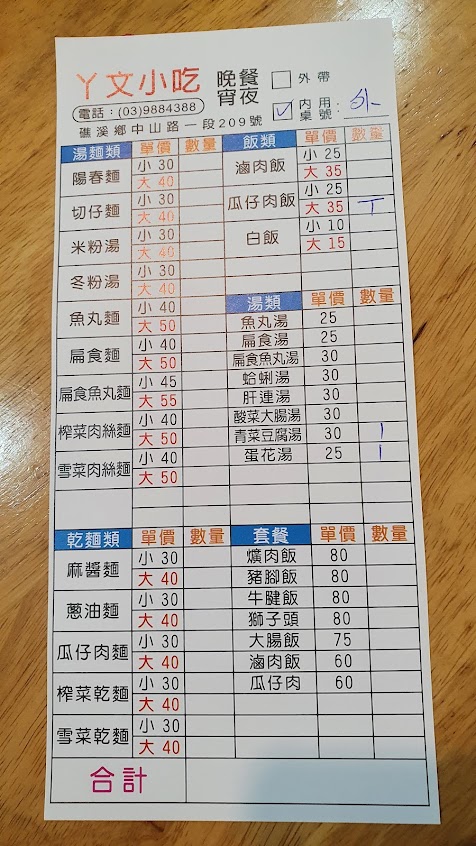 丫文小吃 晚餐宵夜 外帶
電話：(03)9884388 ✓ 內用桌號：外
礁溪鄉中山路一段209號
湯麵類 單價 數量
陽春麵 小 30 大 40
切仔麵 小 30 大 40
米粉湯 小 30 大 40
冬粉湯 小 30 大 40
魚丸麵 小 40 大 50
扁食麵 小 40 大 50
扁食魚丸麵 小 45 大 55
榨菜肉絲麵 小 40 大 50
雪菜肉絲麵 小 40 大 50
飯類 單價 數量
滷肉飯 小 25 大 35
瓜仔肉飯 小 25 大 35 丅
白飯 小 10 大 15
湯類 單價 數量
魚丸湯 25
扁食湯 25
扁食魚丸湯 30
蛤蜊湯 30
肝連湯 30
酸菜大腸湯 30
青菜豆腐湯 30 |
蛋花湯 25 |
乾麵類 單價 數量
麻醬麵 小 30 大 40
蔥油麵 小 30 大 40
瓜仔肉麵 小 30 大 40
榨菜乾麵 小 30 大 40
雪菜乾麵 小 30 大 40
套餐 單價 數量
爌肉飯 80
豬腳飯 80
牛腱飯 80
獅子頭 80
大腸飯 75
滷肉飯 60
瓜仔肉 60
合計